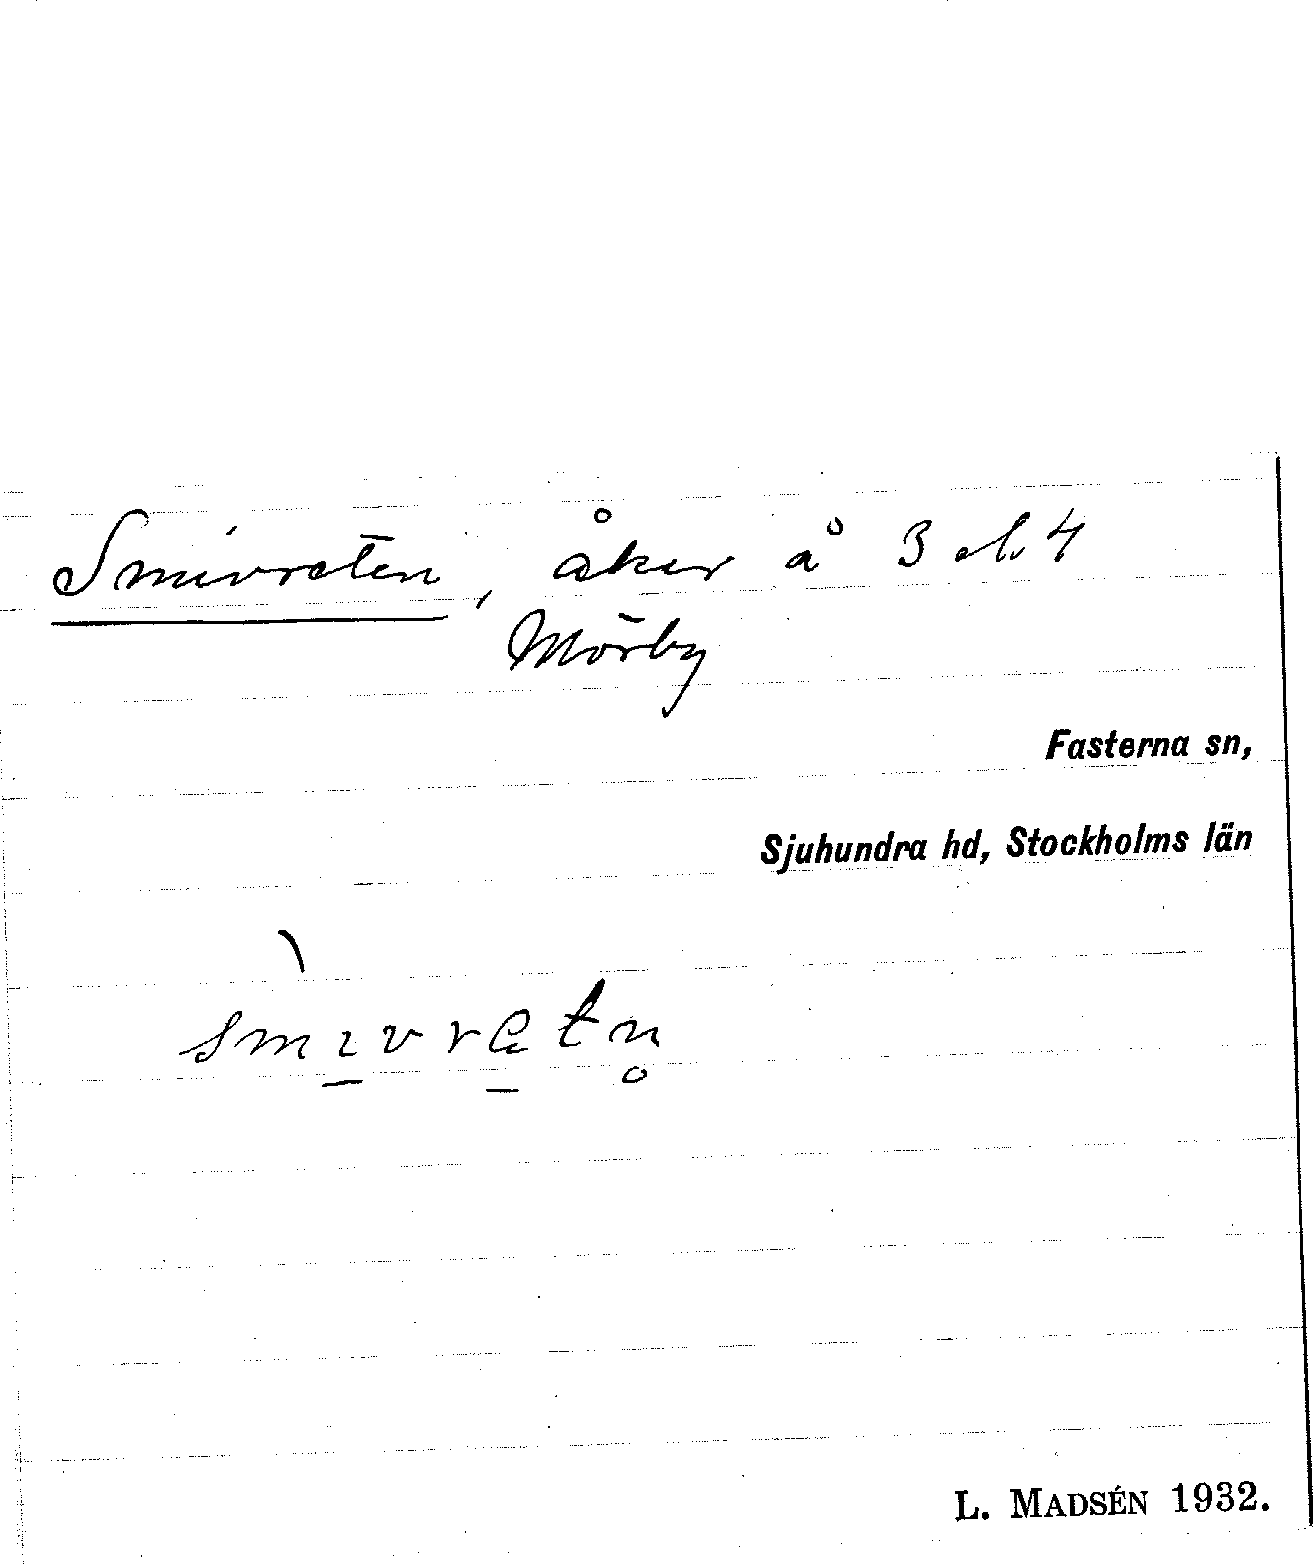 Smivreten, åker å 3 el. 4
Mörby
Fasterna sn,
Sjuhundra hd, Stockholms län
L. MADSÉN 1932.